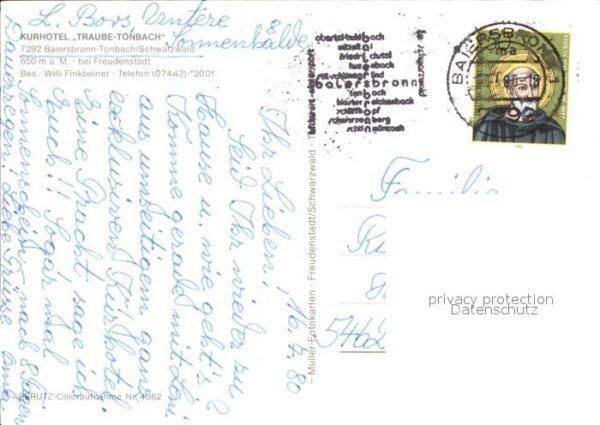 L. Bors Untere
Sonnenhalde
KURHOTEL „TRAUBE-TONBACH"
7292 Baiersbronn-Tonbach/Schwarzwald
650 m ü. M. · bei Freudenstadt
Bes.: Willi Finkbeiner · Telefon (07442) *2001
16.7.80
Ihr Lieben!
Seid Ihr wieder zu
Hause u. wie geht's?
Komme gerade mit Loni
aus umseitigem ganz
exklusiven Kurhotel
Eine Pracht sage ich
Euch!! Sogar mal
Sonnenschein nach 8 Tagen
Dauerregen! Liebe Grüsse Oma.
PERUTZ-Coloraufnahme Nr. 4082
– Müller-Fotokarten · Freudenstadt/Schwarzwald
obertal-buhlbach
mitteltal
friedrichstal
huzenbach
röt-schönegrund
baiersbronn
tonbach
klosterreichenbach
schwarzenberg
schönmünzach
BAIERSBRONN 1
Familie
5462
privacy protection
Datenschutz